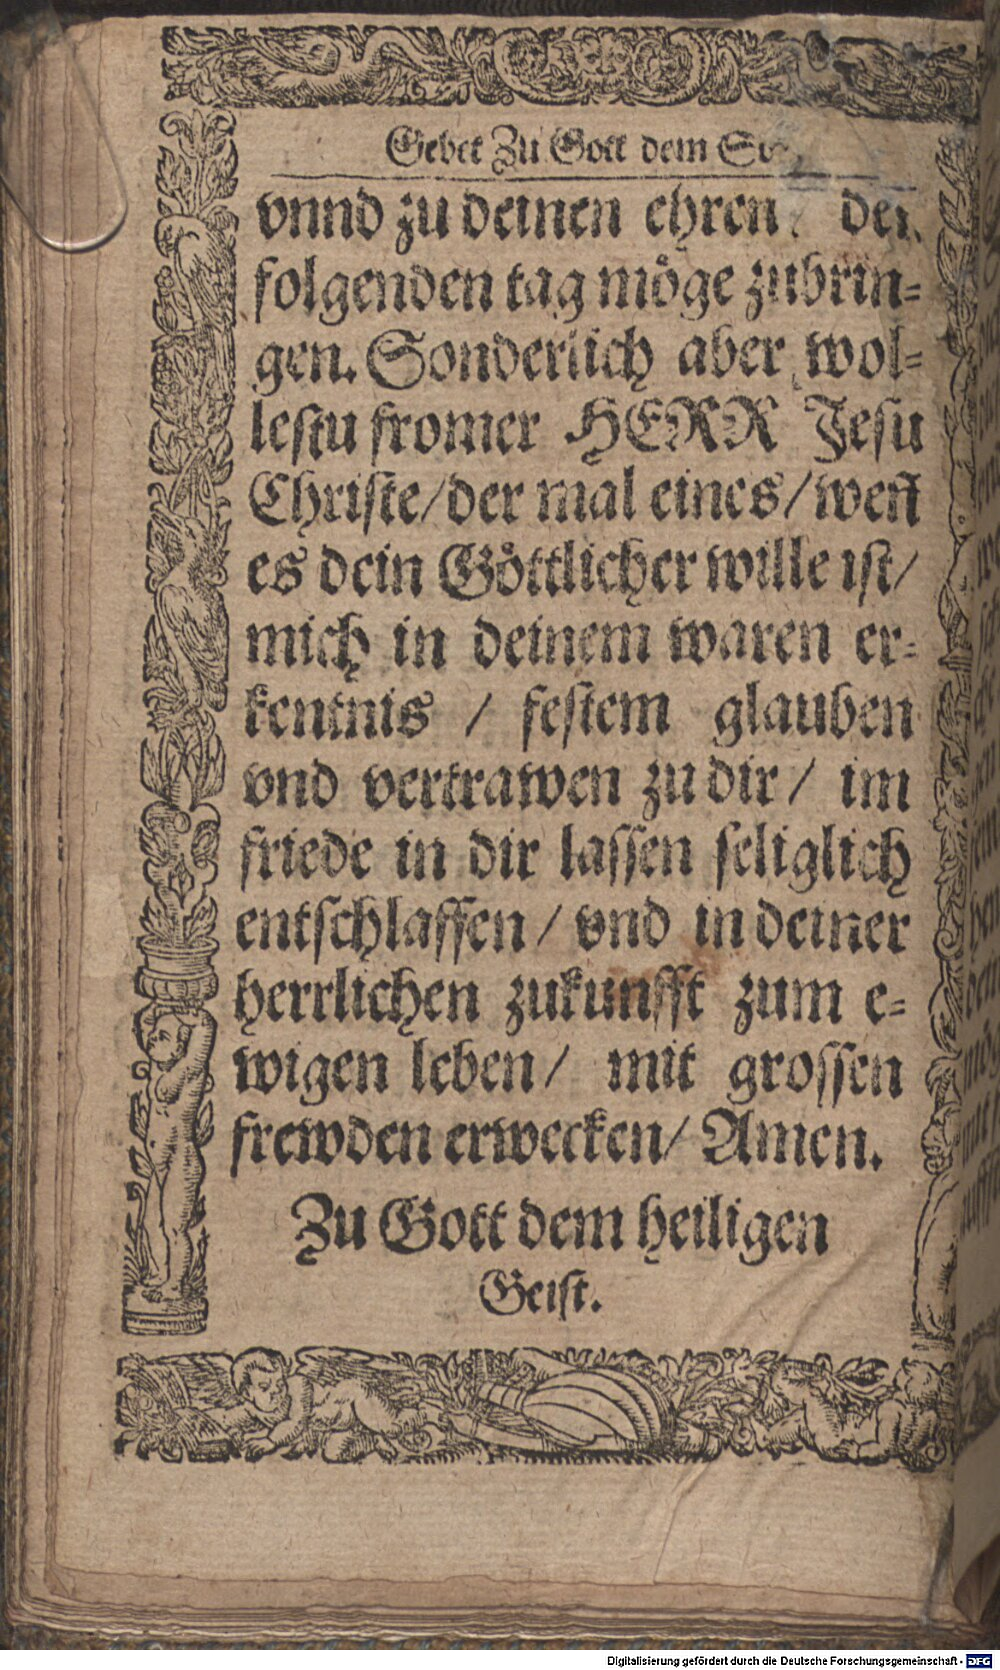 Gebet Zu Gott dem
vnnd zu deinen ehren /
folgenden tag möge zubrin⸗
gen. Sonderlich aber wol⸗
lestu fromer HERR Jesu
Christe/der mal eines/weñ
es dein Göttlicher wille ist/
mich in deinem waren er⸗
kentnis / festem glauben
vnd vertrawen zu dir / im
friede in dir lassen seliglich
entschlaffen / vnd in deiner
herrlichen zukunfft zum e⸗
wigen leben / mit grossen
frewden erwecken/ Amen.
Zu Gott dem heiligen
Geist.
Digitalisierung gefördert durch die Deutsche Forschungsgemeinschaft - DFG